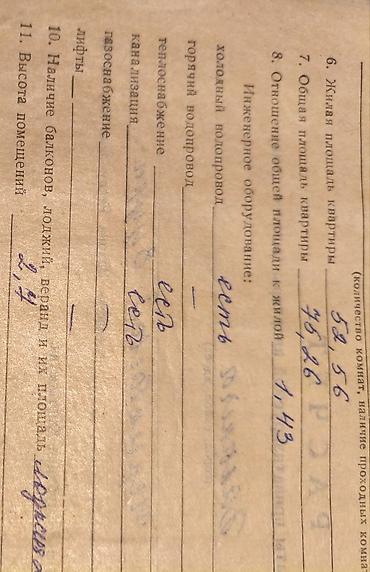 (количество комнат, наличие проходных комнат
6. Жилая площадь квартиры 52,56
7. Общая площадь квартиры 75,26
8. Отношение общей площади к жилой 1,43
Инженерное оборудование:
холодный водопровод есть
горячий водопровод —
теплоснабжение есть
канализация есть
газоснабжение —
лифты —
10. Наличие балконов, лоджий, веранд и их площадь лоджия
11. Высота помещений 2,7